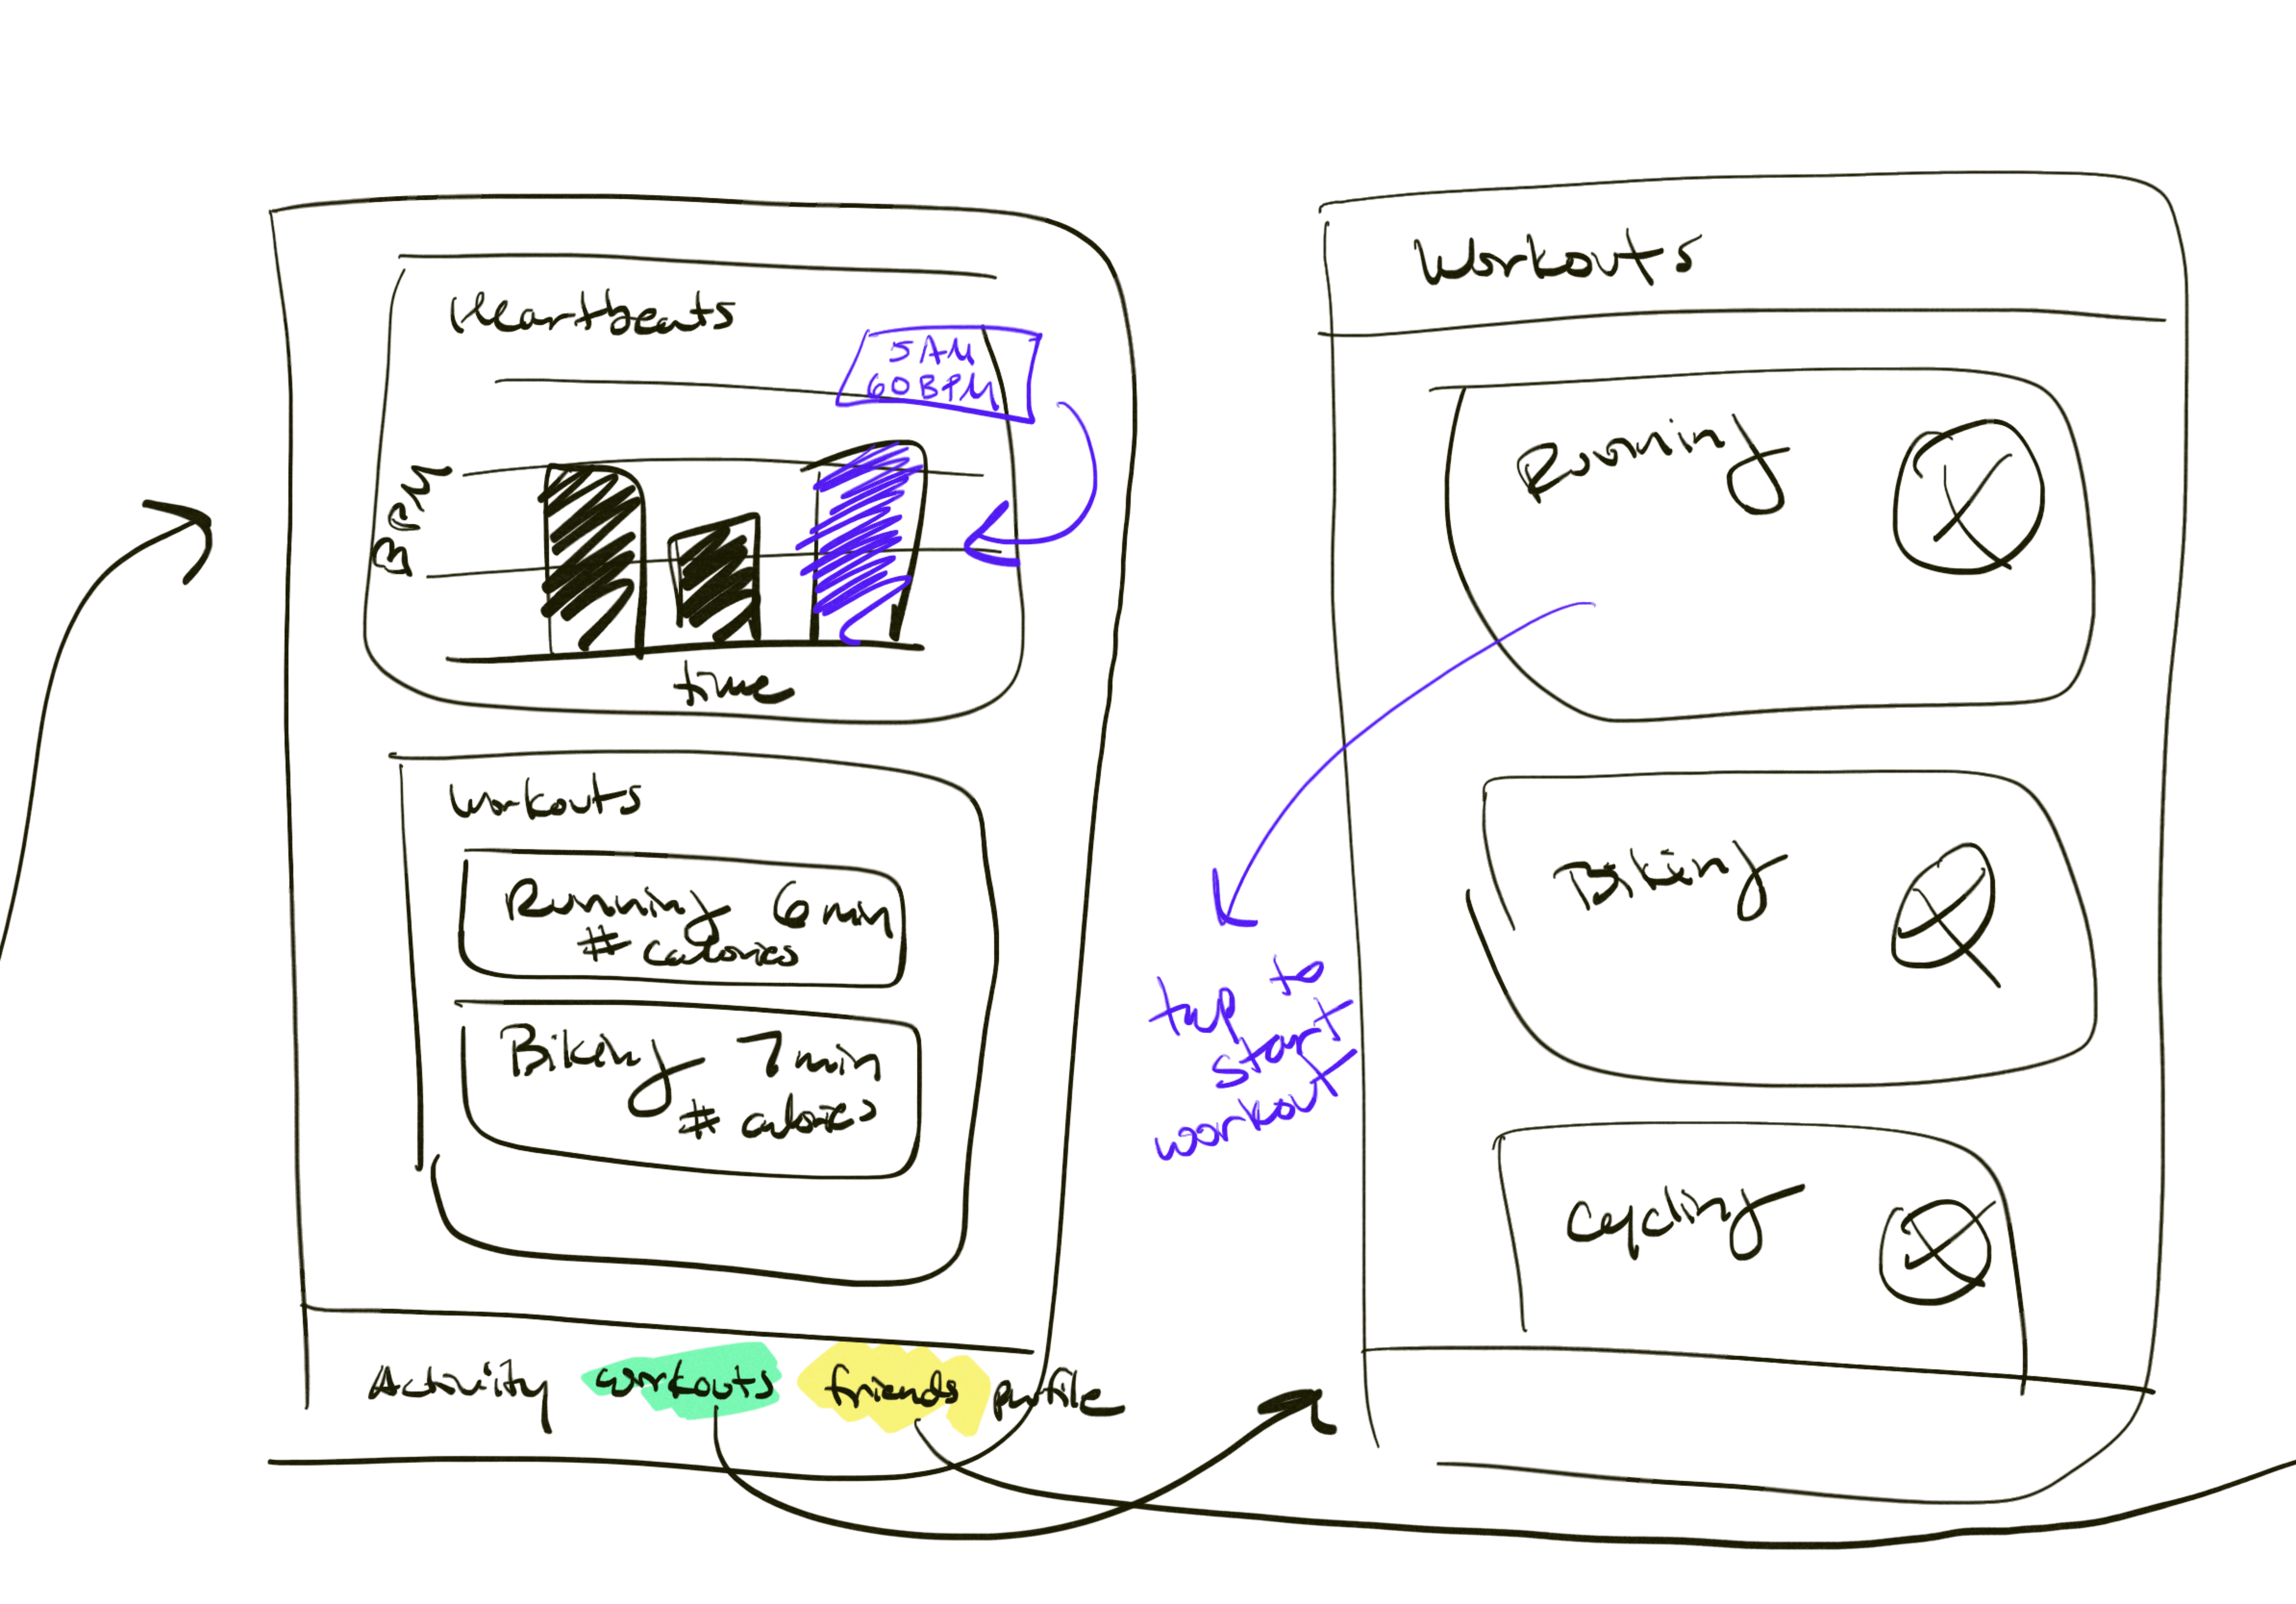 Heartbeats
5 AM
60 BPM
BPM
time
Workouts
Running 6 min
# calories
Biking 7 min
# calories
Activity workouts friends profile
tap to
start
workout
Workouts
Running
Biking
Cycling